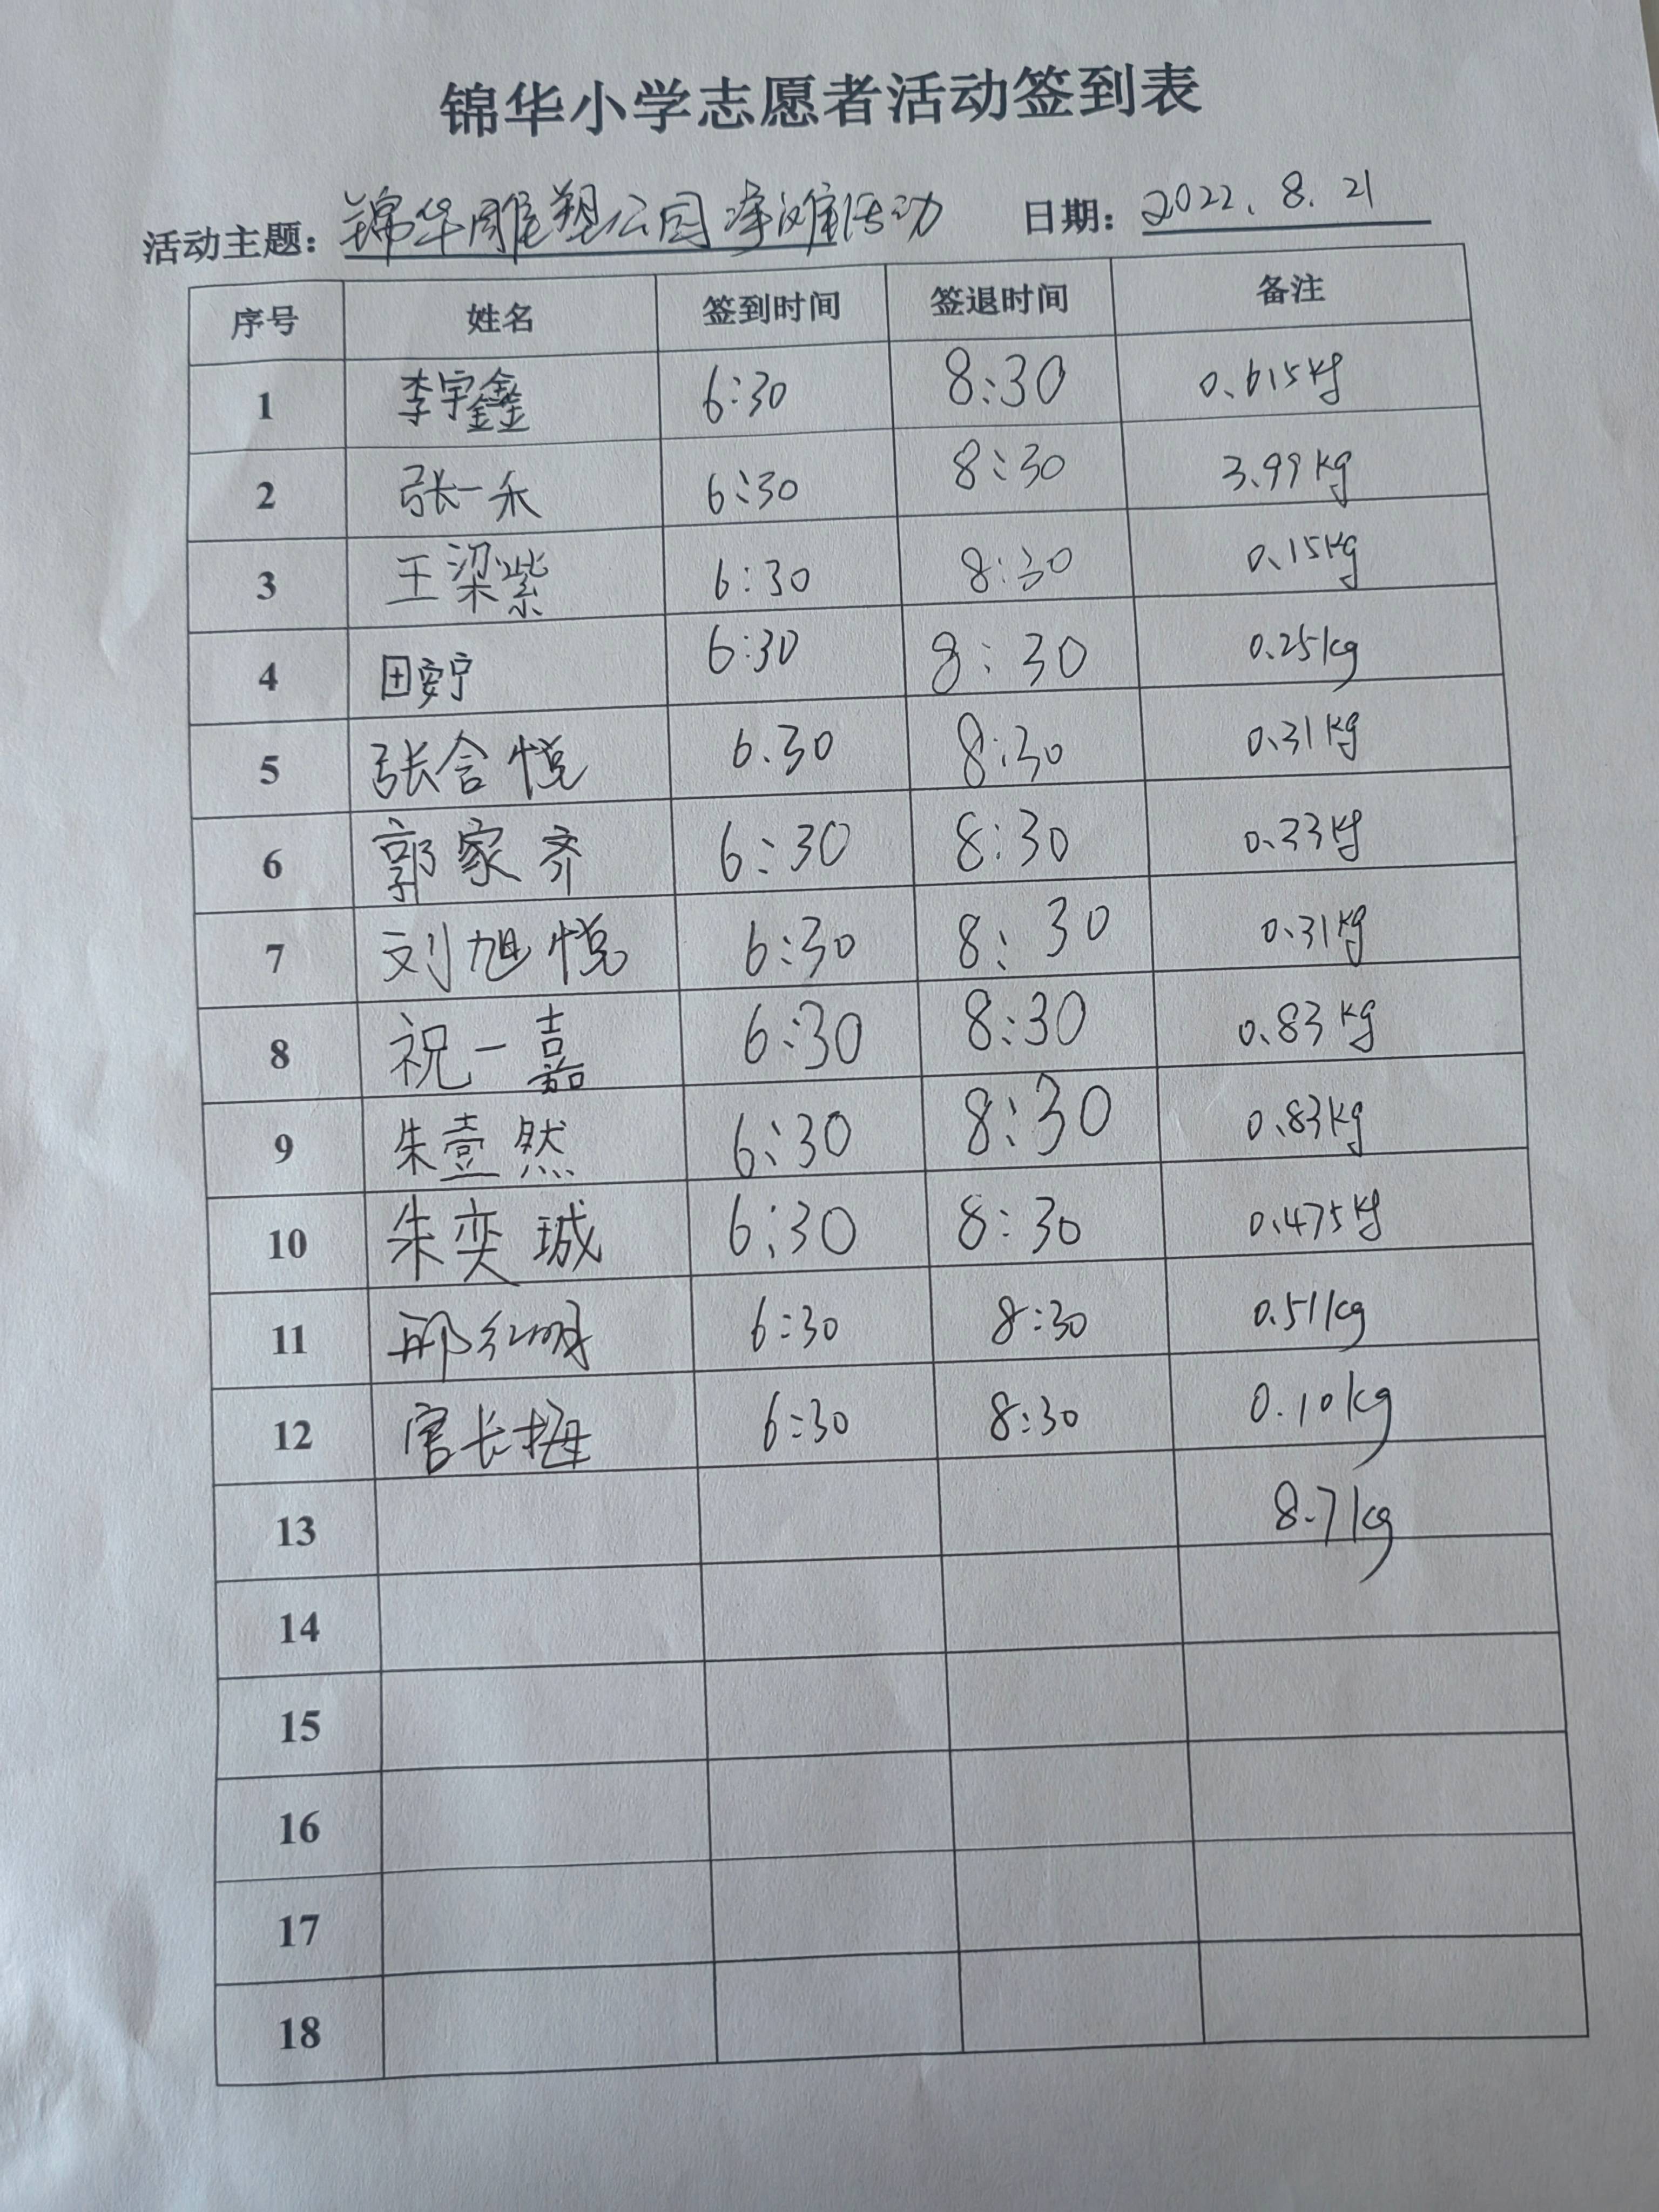 锦华小学志愿者活动签到表
活动主题: 锦华雕塑公园净滩活动 日期: 2022.8.21
序号 姓名 签到时间 签退时间 备注
1 李宇鑫 6:30 8:30 0.615kg
2 张一禾 6:30 8:30 3.99kg
3 王梁紫 6:30 8:30 0.15kg
4 田安宁 6:30 8:30 0.25kg
5 张含悦 6.30 8:30 0.31kg
6 郭家齐 6:30 8:30 0.33kg
7 刘旭悦 6:30 8:30 0.31kg
8 祝一嘉 6:30 8:30 0.83kg
9 朱壹然 6:30 8:30 0.83kg
10 朱奕城 6:30 8:30 0.475kg
11 6:30 8:30 0.51kg
12 官长梅 6:30 8:30 0.10kg
13 8.7kg
14
15
16
17
18